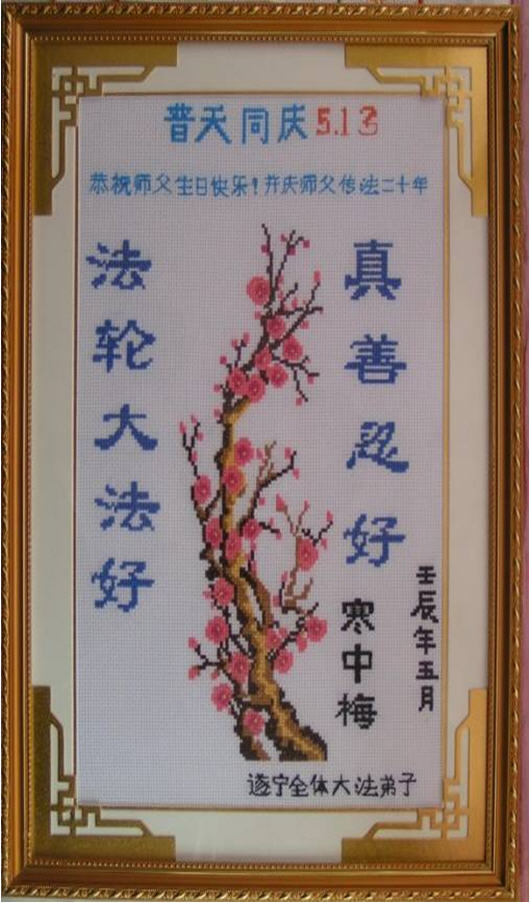 普天同庆5.13
恭祝师父生日快乐！并庆师父传法二十年
真善忍好
法轮大法好
寒中梅
壬辰年五月
遂宁全体大法弟子